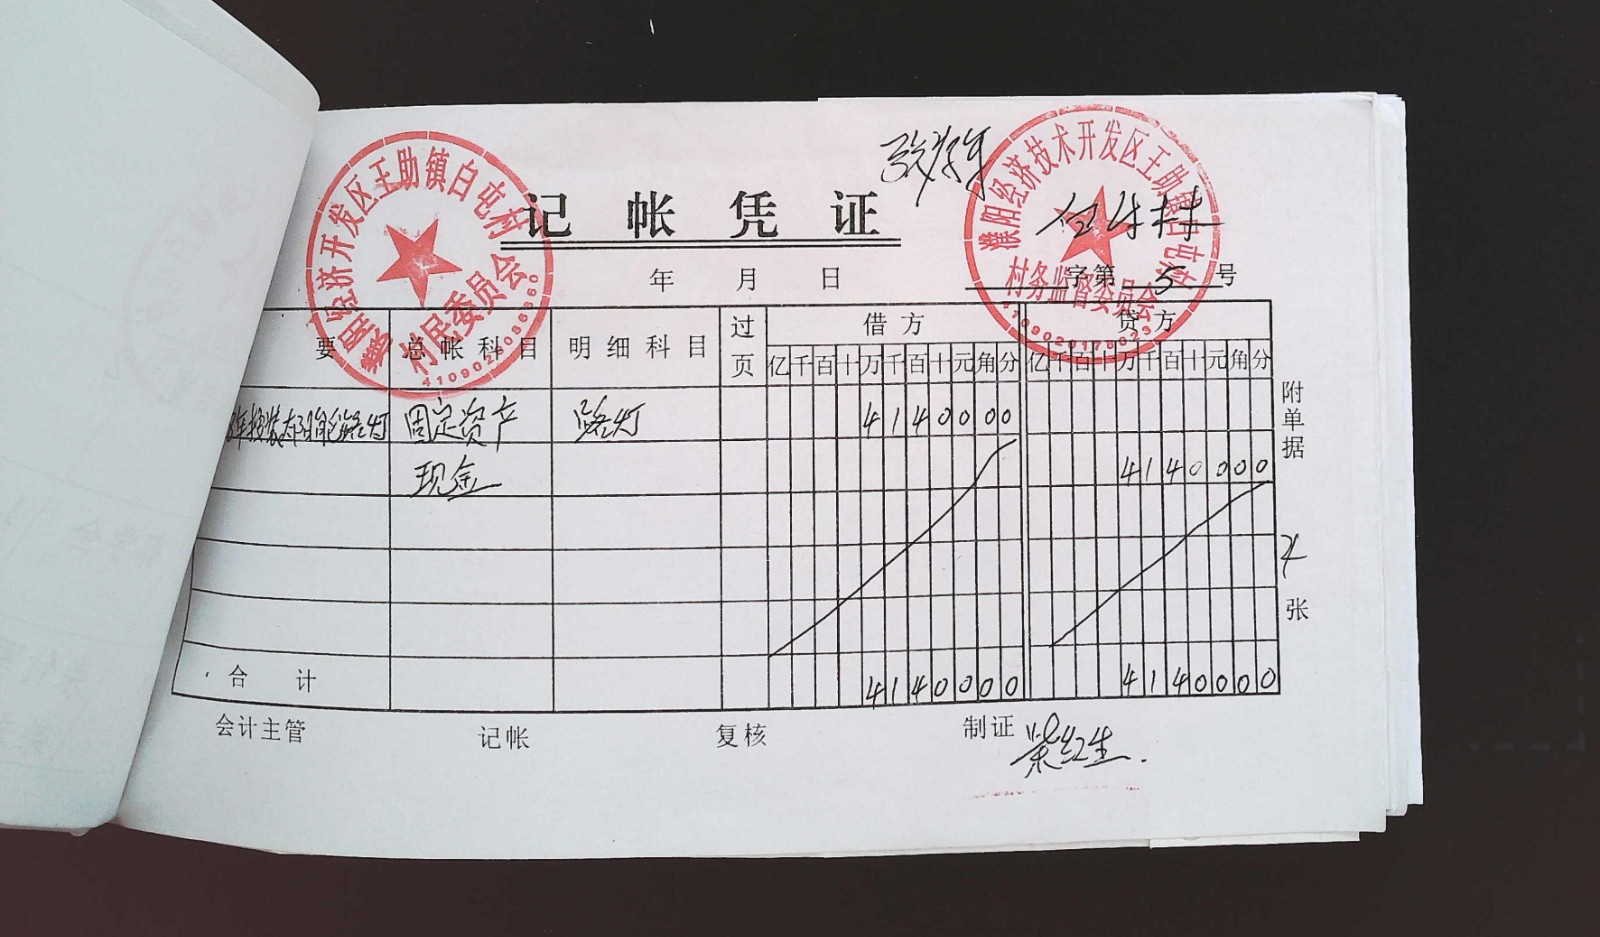 记帐凭证
濮阳经济开发区王助镇白屯村
村民委员会
濮阳经济技术开发区王助镇白屯村
村务监督委员会
年 月 日
字第 5 号
要 总帐科目 明细科目 过页 借方 贷方
亿千百十万千百十元角分 亿千百十万千百十元角分
安装太阳能路灯 固定资产 路灯 4140000
现金 4140000
合计 4140000 4140000
附单据 张
会计主管 记帐 复核 制证